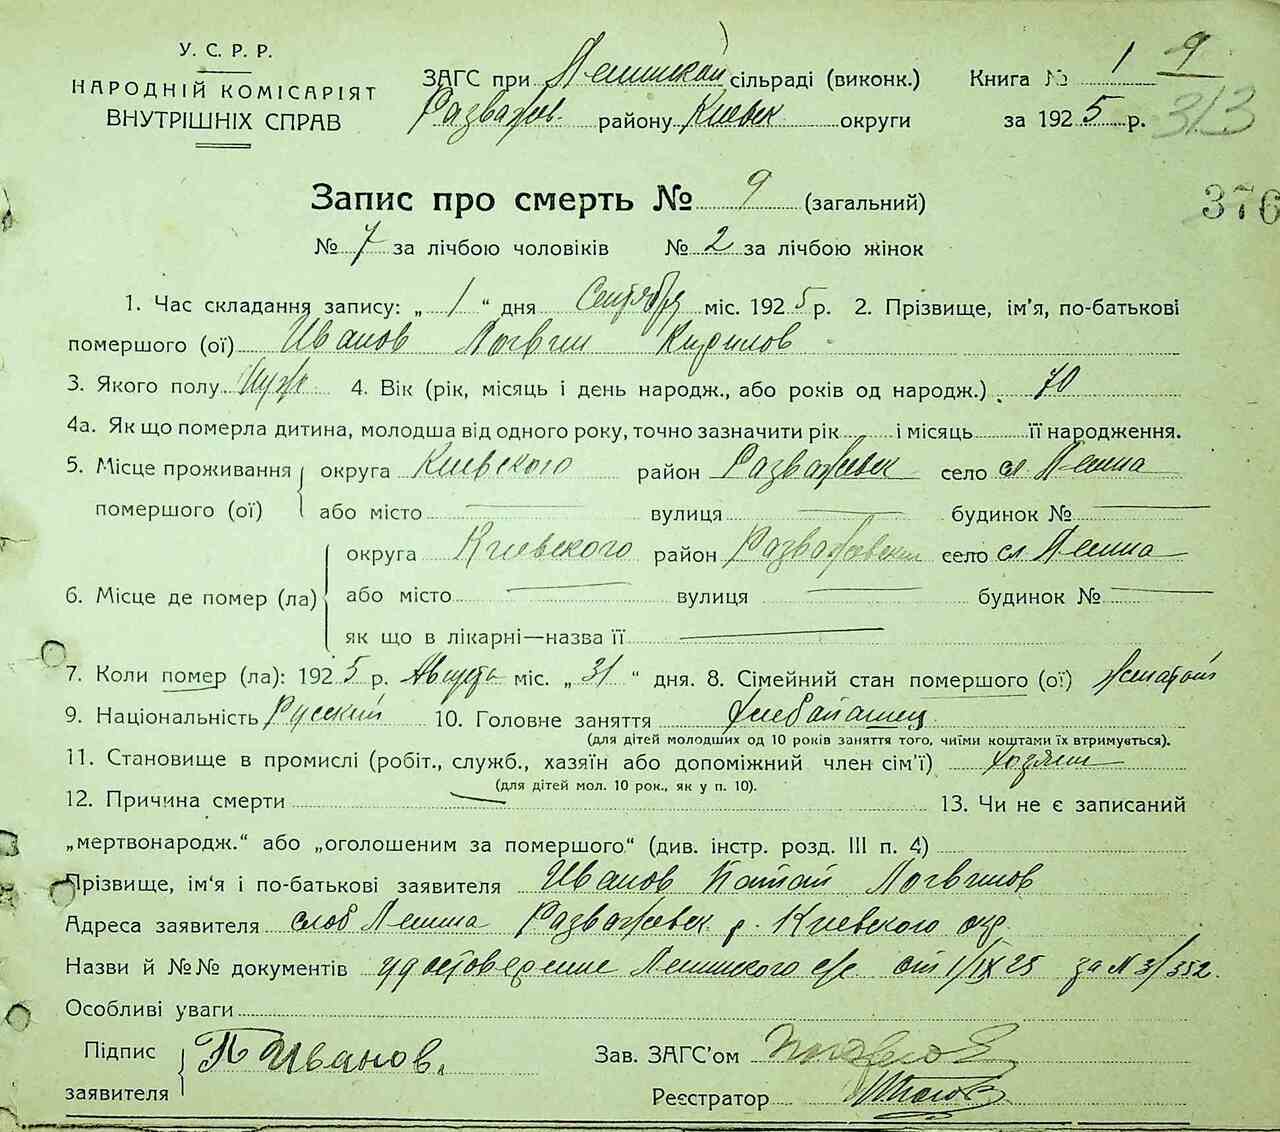 У. С. Р. Р.
НАРОДНІЙ КОМІСАРІЯТ
ВНУТРІШНІХ СПРАВ
ЗАГС при сільраді (виконк.)
Разважов. району Киевск округи
Книга № 1 9
за 1925 р. 313
376
Запис про смерть № 9 (загальний)
№ 7 за лічбою чоловіків № 2 за лічбою жінок
1. Час складання запису: „ 1 “ дня Сентября міс. 1925 р. 2. Прізвище, ім'я, по-батькові
помершого (ої) Иванов Логвин Кирилов
3. Якого полу Муж 4. Вік (рік, місяць і день народж., або років од народж.) 70
4а. Як що померла дитина, молодша від одного року, точно зазначити рік і місяць її народження.
5. Місце проживання округа Киевского район Разважевск село сл
помершого (ої) або місто — вулиця — будинок № —
округа Киевского район Разважевский село сл
6. Місце де помер (ла) або місто — вулиця — будинок № —
як що в лікарні—назва її —
7. Коли помер (ла): 1925 р. Августа міс. „ 31 “ дня. 8. Сімейний стан помершого (ої) Женатый
9. Національність Русский 10. Головне заняття Хлебопашец
(для дітей молодших од 10 років заняття того, чиїми коштами їх втримується).
11. Становище в промислі (робіт., служб., хазяїн або допоміжний член сім'ї) хозяин
(для дітей мол. 10 рок., як у п. 10).
12. Причина смерти — 13. Чи не є записаний
„мертвонародж.“ або „оголошеним за помершого“ (див. інстр. розд. III п. 4)
Прізвище, ім'я і по-батькові заявителя Иванов Логвинов
Адреса заявителя слоб Разважевск р. Киевского окр
Назви й №№ документів удостоверение с/с от 1/IX 25 за № 3/352.
Особливі уваги
Підпис
заявителя П Иванов.
Зав. ЗАГС'ом
Реєстратор